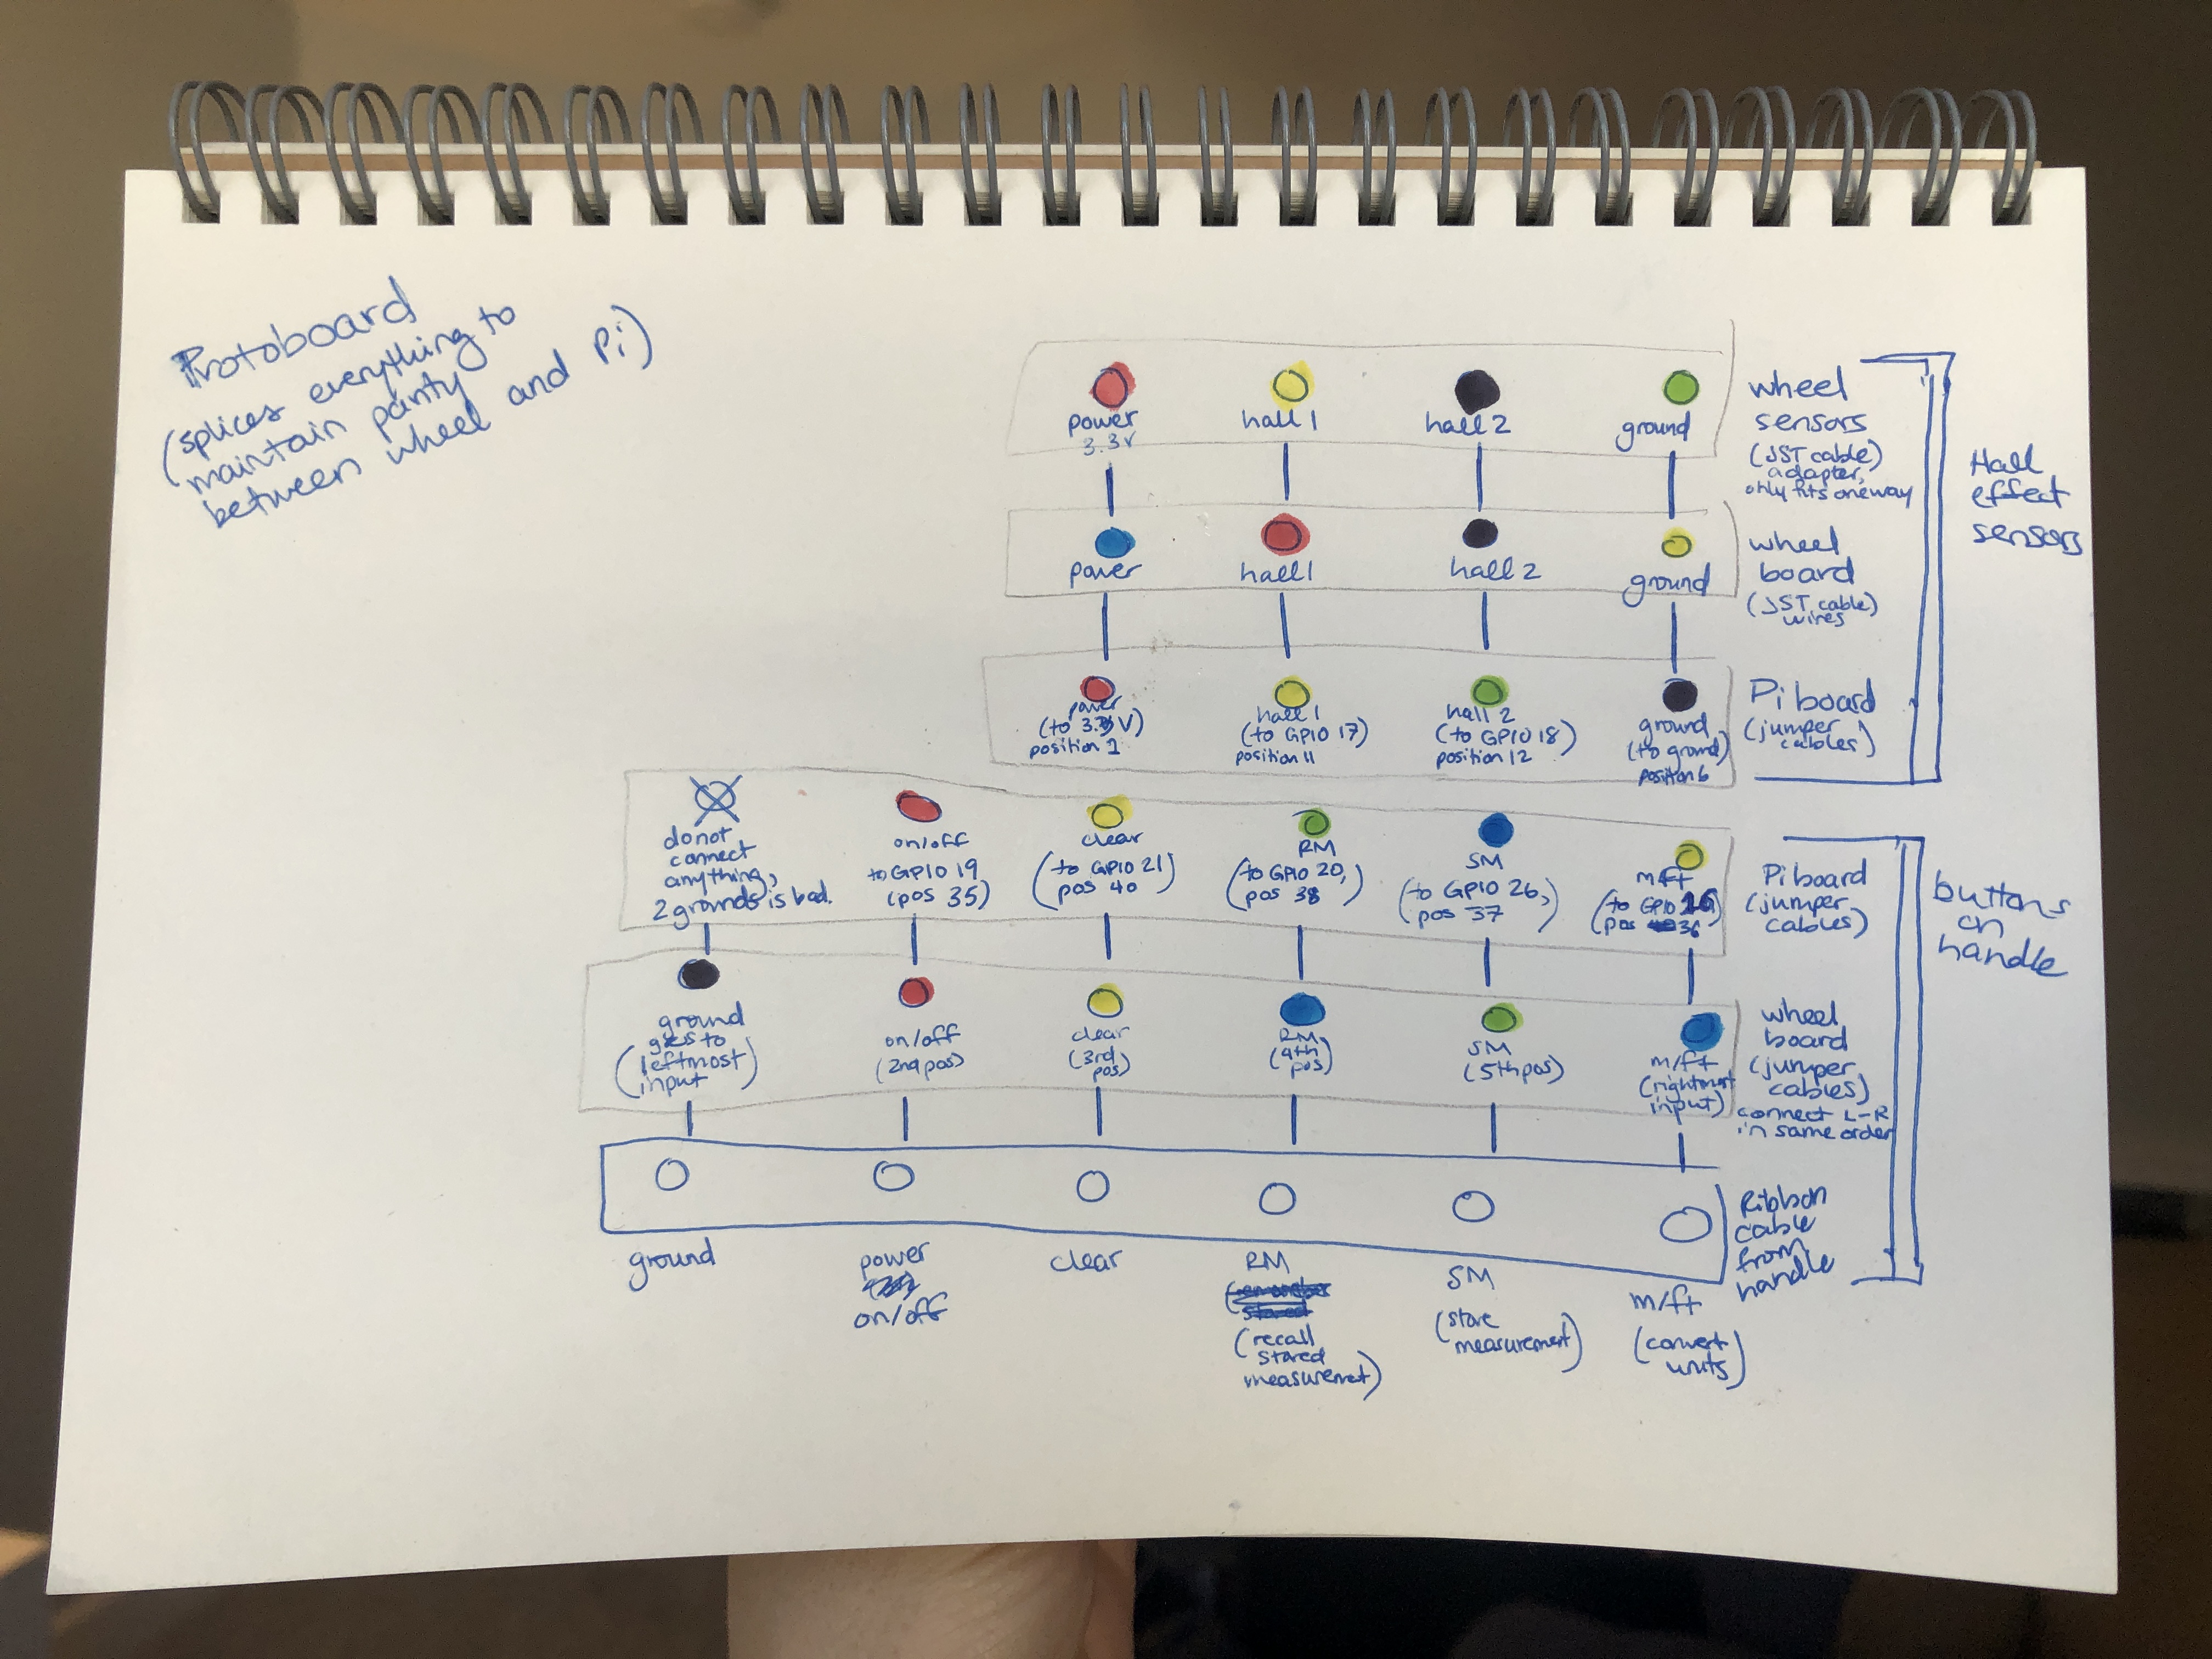 Protoboard
(splices everything to
maintain parity
between wheel and Pi)
power
3.3v
hall 1
hall 2
ground
wheel
sensors
(JST cable)
adapter,
only fits one way
power
hall 1
hall 2
ground
wheel
board
(JST cable)
wires
power
(to 3.3V)
position 1
hall 1
(to GPIO 17)
position 11
hall 2
(to GPIO 18)
position 12
ground
(to ground)
position 6
Pi board
(jumper
cables)
Hall
effect
sensors
do not
connect
anything,
2 grounds is bad.
on/off
to GPIO 19
(pos 35)
clear
(to GPIO 21)
pos 40
RM
(to GPIO 20,)
pos 38
SM
(to GPIO 26,)
pos 37
m/ft
(to GPIO 16)
(pos 36
Pi board
(jumper
cables)
ground
goes to
(leftmost)
input
on/off
(2nd pos)
clear
(3rd
pos)
RM
(4th
pos)
SM
(5th pos)
m/ft
(rightmost
input)
wheel
board
(jumper
cables)
connect L-R
in same order
buttons
on
handle
ground
power
on/off
clear
RM
(recall
stored
measuremet)
SM
(store
measurement)
m/ft
(convert
units)
Ribbon
cable
from
handle